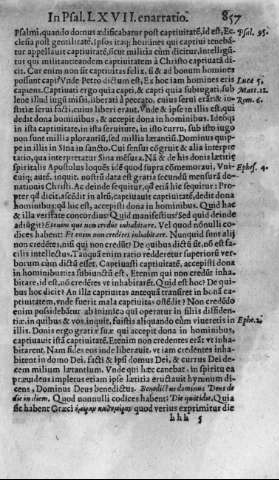 In Psal. LXVII. enarratio. 857
Psalmi, quando domus ædificabatur post captiuitatẽ, id est, Ec- Psal. 95.
clesia post gentilitatẽ, ipsos itaq; homines qui captiui teneban-
tur appellauit captiuitatẽ, sicut militia cùm dicitur, intelligũ-
tur qui militant: eandem captiuitatem à Christo captiuatã di-
cit. Cur enim non sit captiuitas felix, si & ad bonum homines
possunt capi? Vnde Petro dictum est, Ex hoc iam homines eris Luce 5.
capiens. Captiuati ergo quia capti, & capti quia subiugati, sub Mat. 11.
lene illud iugũ missi, liberati à peccato, cuius serui erant & iu- Rom. 6.
stitiæ serui facti, cuius liberi erant. Vnde & ipse in illis est, qui
dedit dona hominibus, & accepit dona in hominibus. Ideóq;
in ista captiuitate, in ista seruitute, in isto curru, sub isto iugo
non sunt millia plorantiũ, sed millia lætantiũ. Dominus quip-
pe in illis in Sina in sancto. Cui sensui cõgruit & alia interpre-
tatio, qua interpretatur Sina mẽsura. Nã & de his donis lætitię
spiritalis Apostolus loquẽs id quod supra cõmemoraui, Vni- Ephes. 4.
cuiq; autẽ, inquit, nostrũ data est gratia secundũ mensurã do-
nationis Christi. Ac deinde sequitur, qđ etiã hîc sequitur: Pro-
pter qđ dicit, ascẽdit in altũ, captiuauit captiuitatẽ, dedit dona
hominibus: qđ hoc est, accepisti dona in hominibus. Quid hac
& illa veritate concordius? Quid manifestius? Sed quid deinde
adiũgit? Etenim qui non credunt inhabitare. Vel quod nõnulli co-
dices habent: Etenim non credentes inhabitare. Nunquid sunt alij
non credẽtes, nisi qui non credũt? De quibus dictũ sit, nõ est fa-
cilis intellectus. Tanquã enim ratio redderetur superiorũ ver-
borum cùm dictũ esset. Captiuasti captiuitatẽ, accepisti dona
in hominibus: ita subiunctũ est, Etenim qui non credũt inha-
bitare, id est, nõ credẽtes vt inhabitarẽt. Quid est hoc? De qui-
bus hoc dicit? An illa captiuitas antequã transiret in bonã ca-
ptiuitatem, vnde fuerit mala captiuitas ostẽdit? Non credẽdo
enim possidebãtur ab inimico qui operatur in filijs diffiden-
tiæ, in quibus & vos inquit, fuistis aliquando cùm viueretis in Ephe. 2.
illis. Donis ergo gratiæ suæ qui accepit dona in hominibus,
captiuauit istã captiuitatẽ. Etenim non credentes erãt vt inha-
bitarent. Nam fides eos inde liberauit, vt iam credentes inha-
bitent in domo Dei, facti & ipsi domus Dei, & currus Dei de-
cem milium lætantium. Vnde qui hæc canebat, in spiritu ea
præuidens impletus etiam ipse lætitia eructauit hymnum di-
cens, Dominus Deus benedictus. Benedictus dominus Deus de
die in diem. Quod nonnulli codices habent: Die quotidie. Quia
sic habent Græci ἡμέραν καθ᾽ ἡμέραν quod verius exprimitur die
hhh 5